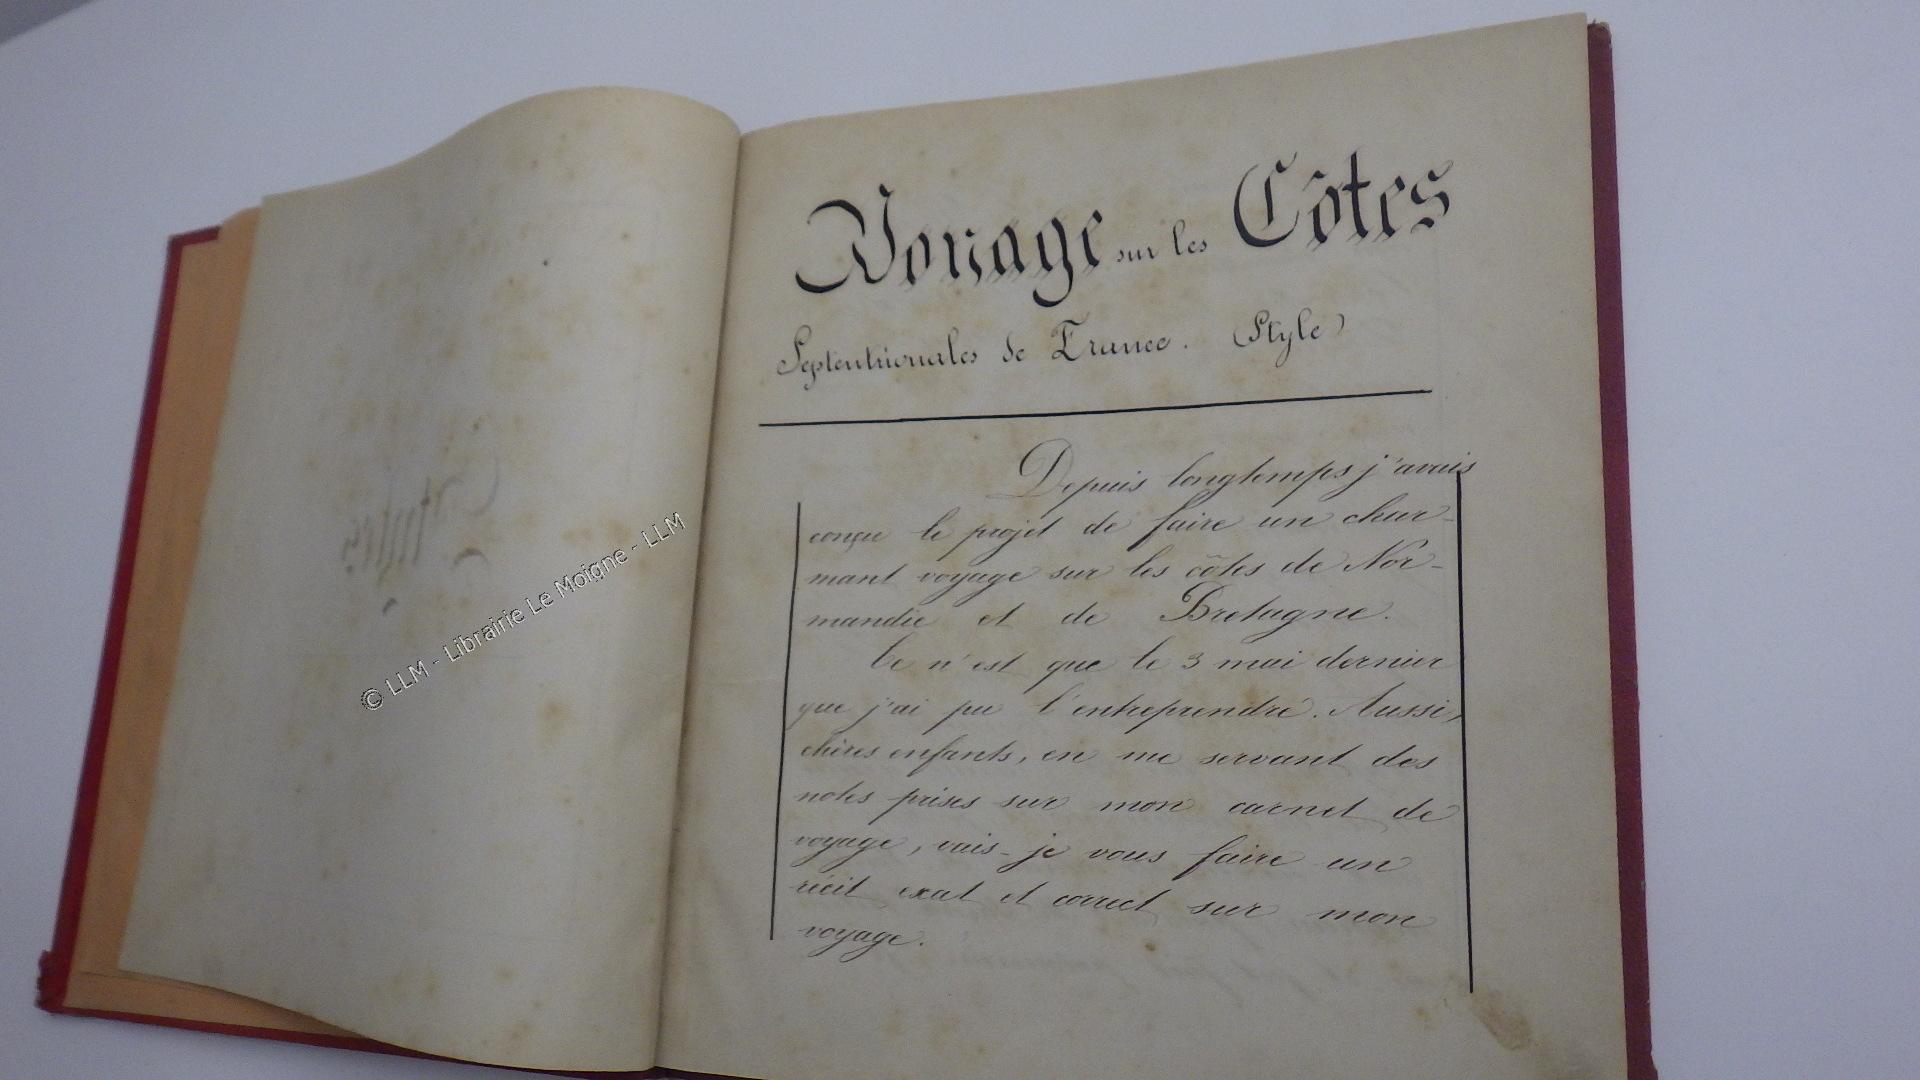 Voyage sur les Côtes
Septentrionales de France. (Style)
Depuis longtemps j'avais
conçu le projet de faire un char-
mant voyage sur les côtes de Nor-
mandie et de Bretagne.
Ce n'est que le 3 mai dernier
que j'ai pu l'entreprendre. Aussi,
chères enfants, en me servant des
notes prises sur mon carnet de
voyage, vais-je vous faire un
récit exact et correct sur mon
voyage.
© LLM - Librairie Le Moigne - LLM